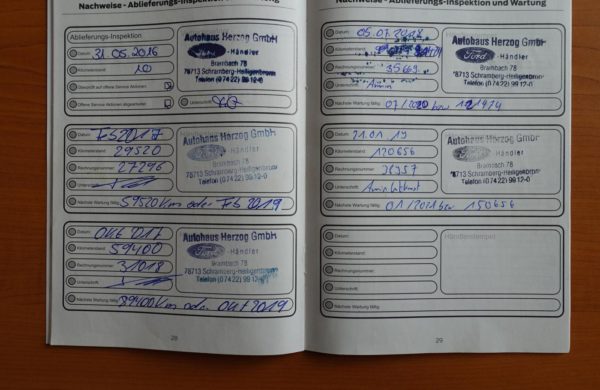 Nachweise - Ablieferungs-Inspektion
Ablieferungs-Inspektion
Datum 31.05.2016
Kilometerstand 10
Überprüft auf offene Service Aktionen
Offene Service Aktionen abgearbeitet
Unterschrift
Autohaus Herzog GmbH
Ford -Händler
Brambach 78
78713 Schramberg-Heiligenbronn
Telefon (07422) 9912-0
Datum Feb 2017
Kilometerstand 29520
Rechnungsnummer 27296
Unterschrift
Nächste Wartung fällig 59520 Km oder Feb 2019
Autohaus Herzog GmbH
Ford -Händler
Brambach 78
78713 Schramberg-Heiligenbronn
Telefon (07422) 9912-0
Datum Okt 2017
Kilometerstand 59400
Rechnungsnummer 31018
Unterschrift
Nächste Wartung fällig 89400 Km oder Okt 2019
Autohaus Herzog GmbH
Ford -Händler
Brambach 78
78713 Schramberg-Heiligenbronn
Telefon (07422) 9912-0
28
Nachweise - Ablieferungs-Inspektion und Wartung
Datum 05.07.2018
Kilometerstand
Rechnungsnummer 35669
Unterschrift
Nächste Wartung fällig 07/2020 bzw 121474
Autohaus Herzog GmbH
Ford -Händler
Brambach 78
78713 Schramberg-Heiligenbronn
Telefon (07422) 9912-0
Datum 21.01.19
Kilometerstand 120656
Rechnungsnummer
Unterschrift
Nächste Wartung fällig 01/2021 bzw 150656
Autohaus Herzog GmbH
Ford -Händler
Brambach 78
78713 Schramberg-Heiligenbronn
Telefon (07422) 9912-0
Datum
Kilometerstand
Rechnungsnummer
Unterschrift
Nächste Wartung fällig
Händlerstempel
29